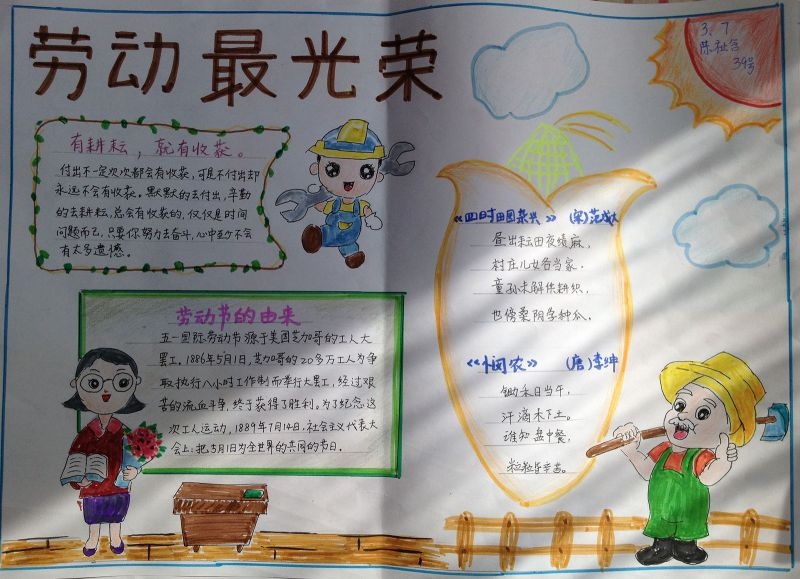 劳动最光荣
3.7
陈祉含
39号
有耕耘，就有收获。
付出不一定次次都会有收获，可是不付出却
永远不会有收获。默默的去付出，辛勤
的去耕耘，总会有收获的，仅仅是时间
问题而已，只要你努力去奋斗，心中至少不会
有太多遗憾。
劳动节的由来
五一国际劳动节源于美国芝加哥的工人大
罢工。1886年5月1日，芝加哥的20多万工人为争
取执行八小时工作制而举行大罢工，经过艰
苦的流血斗争，终于获得了胜利。为了纪念这
次工人运动，1889年7月14日，社会主义代表大
会上：把5月1日为全世界的共同的节日。
《四时田园杂兴》 （宋）范成大
昼出耘田夜绩麻，
村庄儿女各当家．
童孙未解供耕织，
也傍桑阴学种瓜。
《悯农》 （唐）李绅
锄禾日当午，
汗滴木下土。
谁知盘中餐，
粒粒皆辛苦。